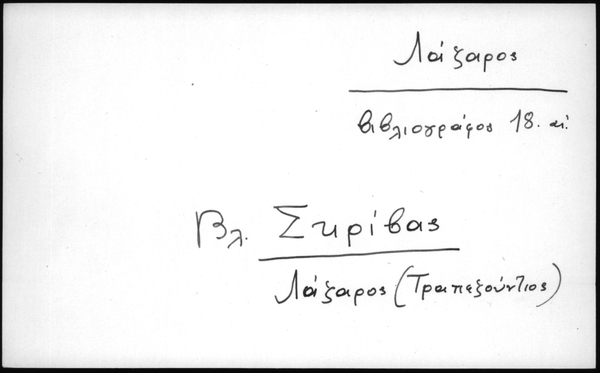 Λάζαρος
βιβλιογράφος 18. αἰ.
Βλ. Σκρίβας
Λάζαρος (Τραπεζούντιος)